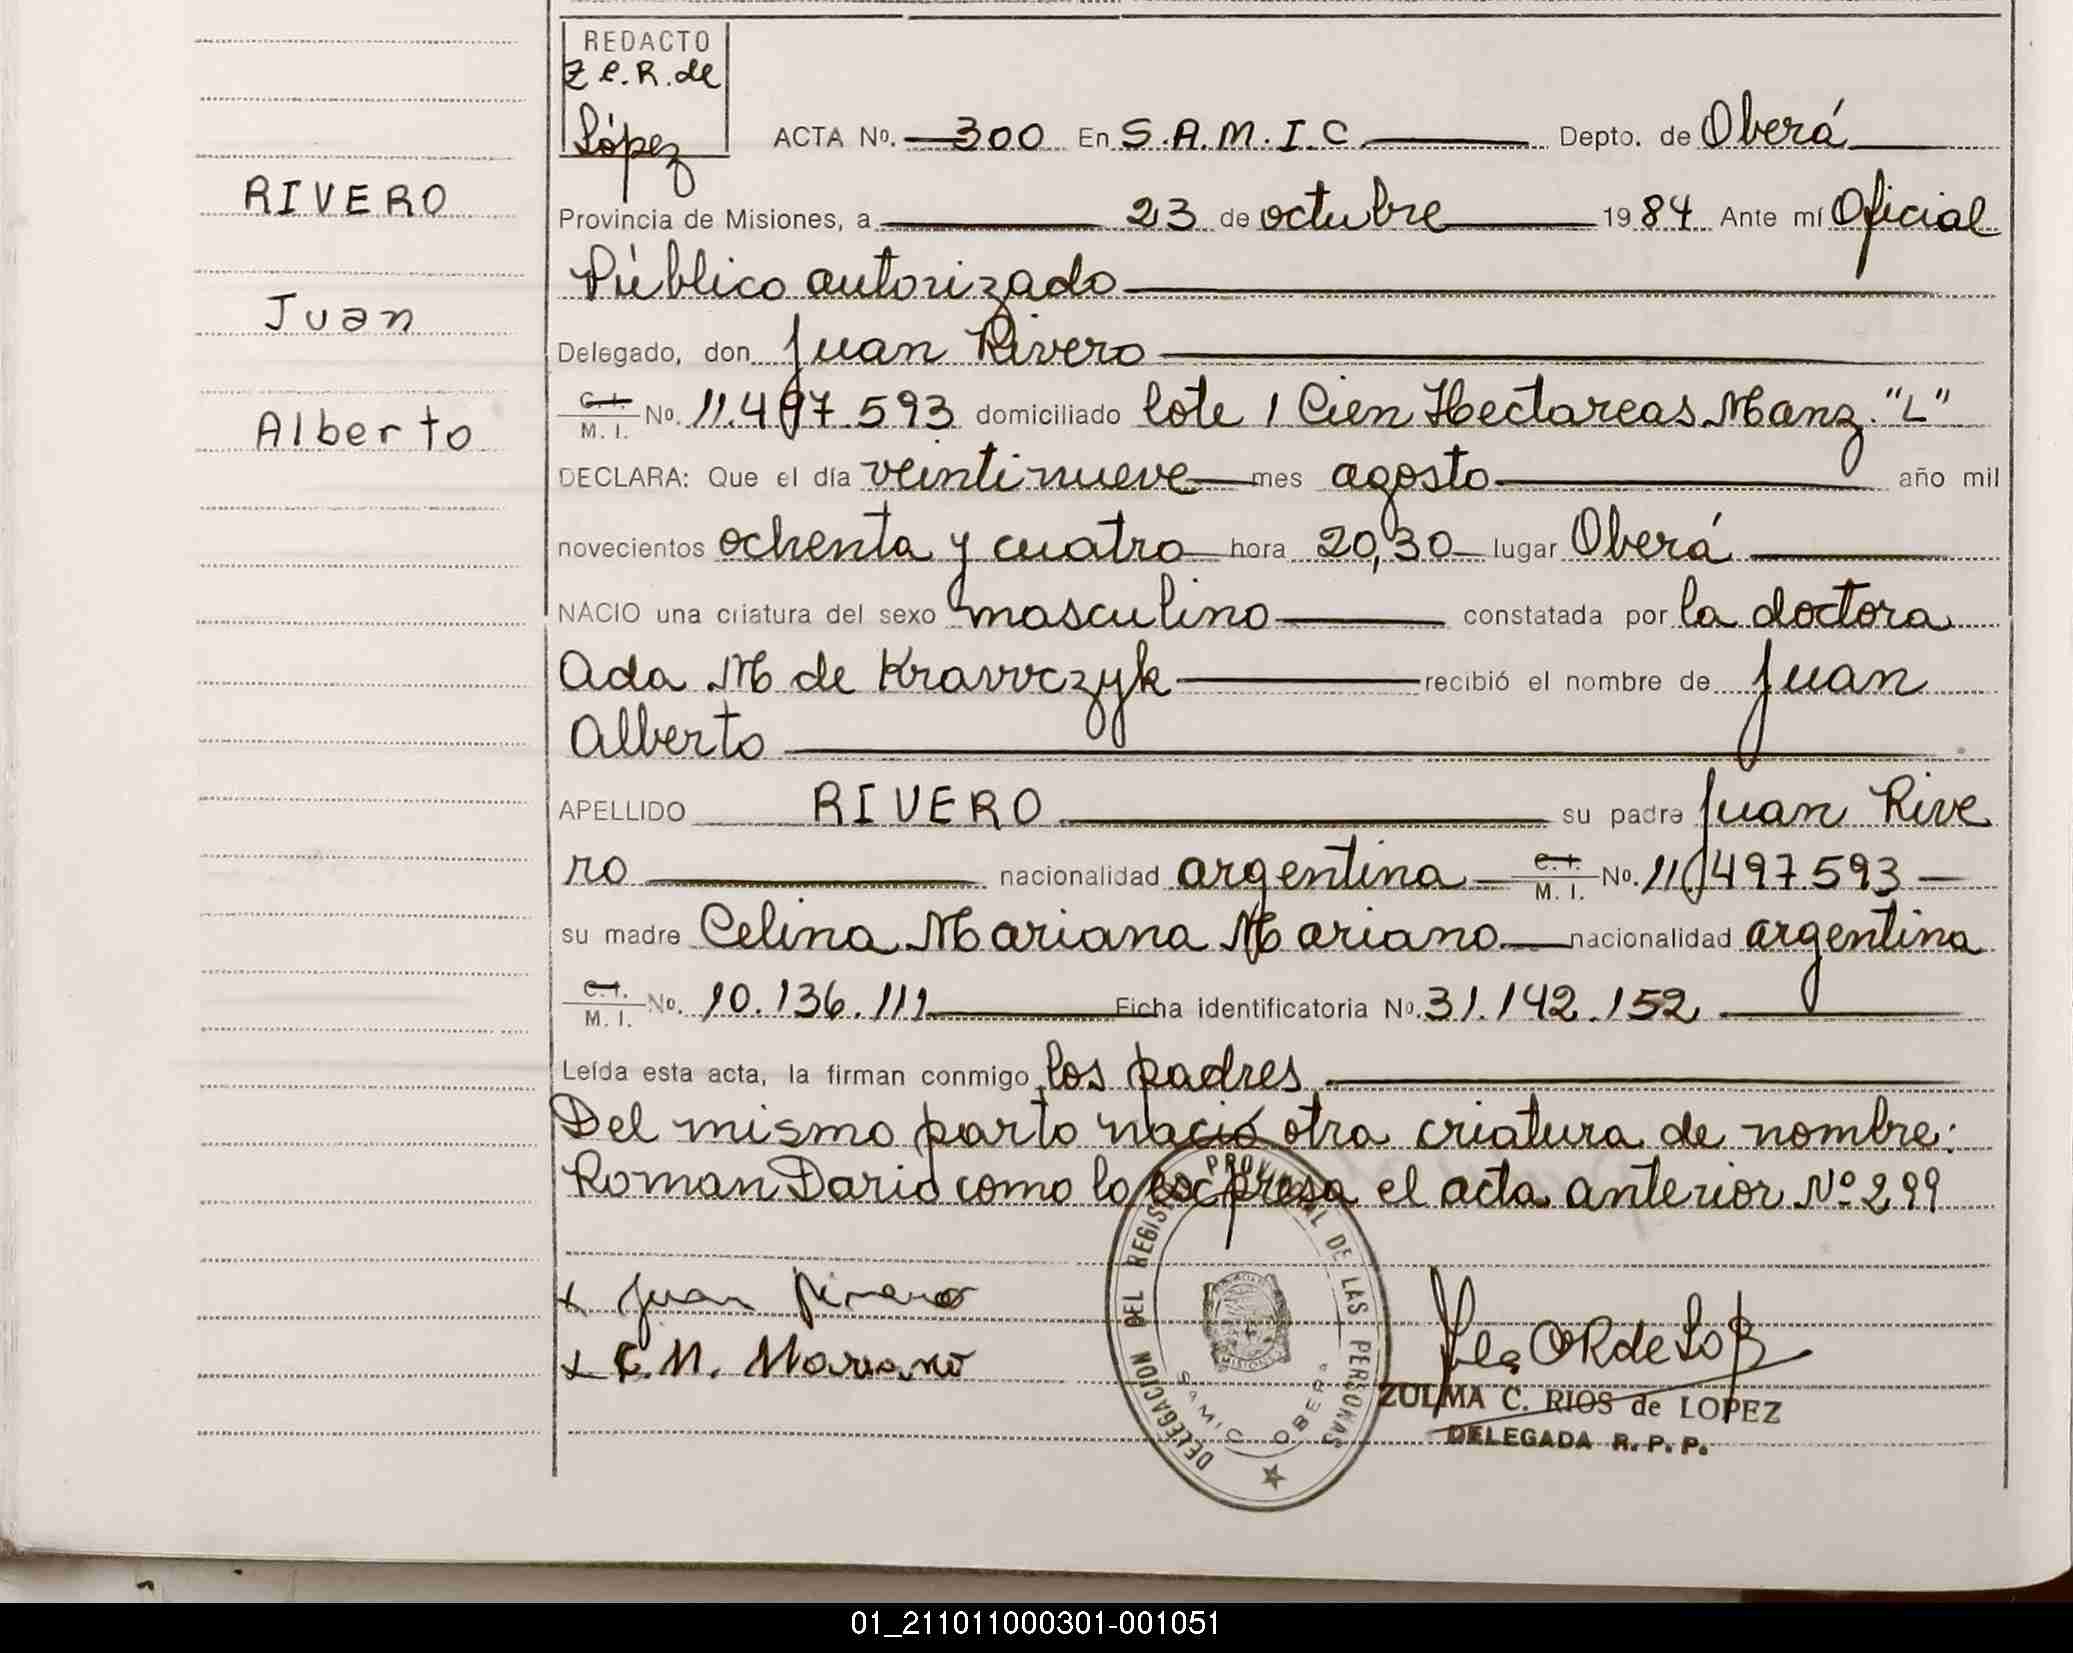 REDACTO
Z C. R. de
López
ACTA No. 300 En S.A.M.I.C Depto. de Oberá
RIVERO
Provincia de Misiones, a 23 de octubre 1984 Ante mí Oficial
Público autorizado
Juan
Delegado, don Juan Rivero
Alberto
C. I. M. I. No. 11.497.593 domiciliado lote 1 Cien Hectareas Manz. "L"
DECLARA: Que el día veintinueve mes agosto año mil
novecientos ochenta y cuatro hora 20,30 lugar Oberá
NACIO una criatura del sexo masculino constatada por la doctora
Ada M de Kravvczyk recibió el nombre de Juan
Alberto
APELLIDO RIVERO su padre Juan Rive
ro nacionalidad argentina C. I. M. I. No. 11.497.593
su madre Celina Mariana Mariano nacionalidad argentina
C. I. M. I. No. 10.136.111 Ficha identificatoria No. 31.142.152
Leída esta acta, la firman conmigo los padres
Del mismo parto nació otra criatura de nombre:
Roman Dario como lo escpresa el acta anterior Nº 299
x Juan Rivero
x C. M. Mariano
DELEGACION DEL REGISTRO PROVINCIAL DE LAS PERSONAS
SAMIC OBERA
MISIONES
ZULMA C. RIOS de LOPEZ
DELEGADA R. P. P.
01_211011000301-001051